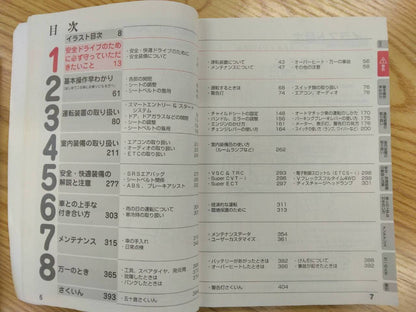 目 次
イラスト目次 8
1
安全ドライブのため
に必ず守っていただ
きたいこと 13
・安全・快適ドライブのために
・安全装備について
・運転装置について 43
・メンテナンスについて 47
・オーバーヒート・万一の事故 56
・その他の注意 58
2
基本操作早わかり
61
・各部の開閉
・シートの調整
・シートベルトの着用
・運転するときは 68
・警告灯 74
・スイッチ類の取り扱い 76
・エアコン、オーディオ 78
3
運転装置の取り扱い
80
・スマートエントリー&スタート
システム
・ドア、ドアガラスなどの開閉
・シートの調整
・シートベルトの着用
・チャイルドシートの固定
・ハンドル、ミラーの調整
・エンジンのかけ方
・チェンジレバーの使い方
・オートマチック車の運転のしかた
・パーキングブレーキレバーの使い方
・メーター、表示灯、警告灯の見方
・スイッチの使い方
4
室内装備の取り扱い
211
・エアコンの取り扱い
・オーディオの取り扱い
・ETCの取り扱い
・室内装備品の使い方
(ルームランプなど) 262
5
安全・快適装備の
解説と注意 277
・SRSエアバッグ
・シートベルト関係
・ABS、ブレーキアシスト
・VSC & TRC
・CVT、Super CVT
・Super ECT
・電子制御スロットル(ETCS-i)
・Vフレックスフルタイム4WD
・ディスチャージヘッドランプ
6
車との上手な
付き合い方 303
・雨の日の運転について
・寒冷時の取り扱い
・経済的な運転 311
・環境保護のために 313
7
メンテナンス 315
・車の手入れ
・日常点検
・メンテナンスデータ 354
・ユーザーカスタマイズ 361
8
万一のとき 365
・工具、スペアタイヤ、発炎筒
・故障したときは
・パンクしたときは
・バッテリーがあがったときは
・オーバーヒートしたときは
・けん引について
・事故が起きたときは
さくいん 393
・五十音さくいん
・警告灯さくいん 404
6
7